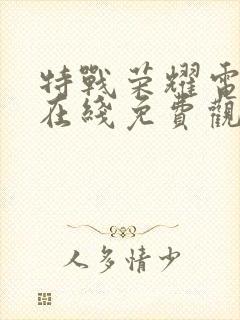 特戰荣耀電
在綫免費觀
人多情少